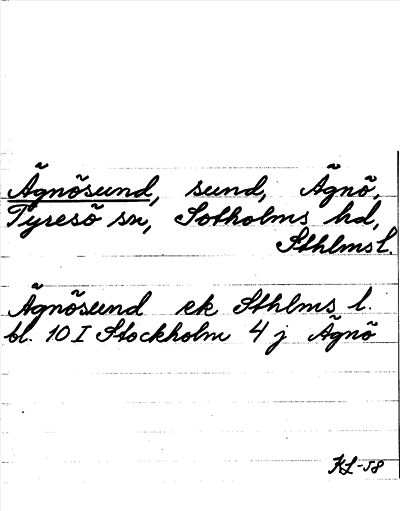 Ägnösund, sund, Ägnö,
Tyresö sn, Sotholms hd,
Sthlmsl.
Ägnösund ek Sthlms l.
bl. 10 I Stockholm 4 j Ägnö
KL-58